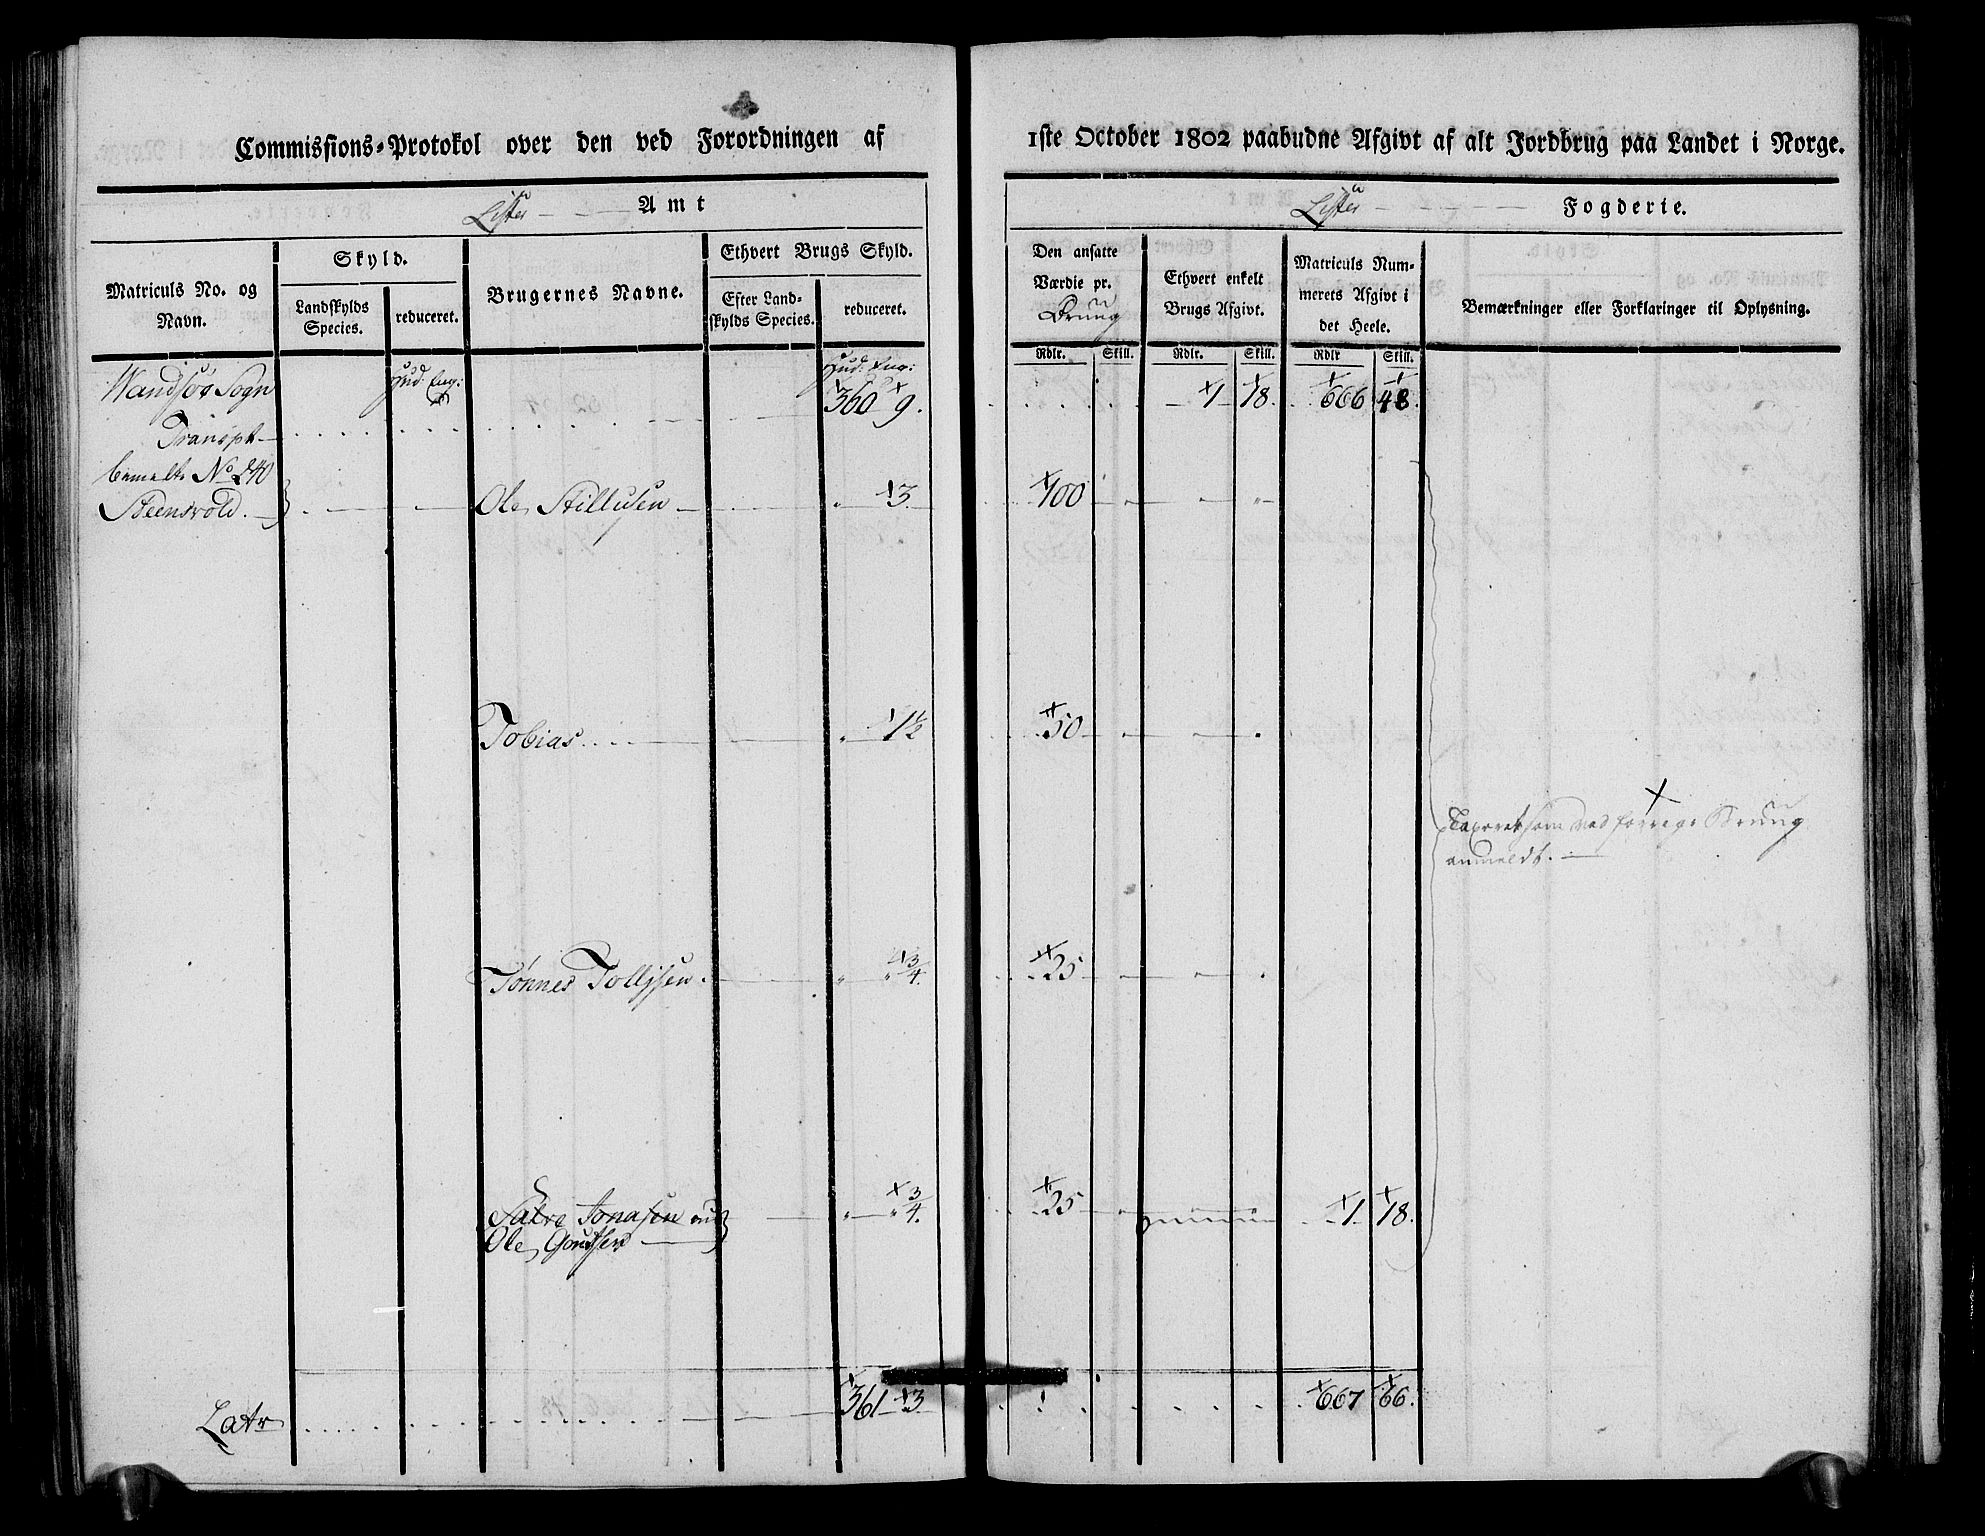 Commissions-Protokol over den ved Forordningen af
1ste October 1802 paabudne Afgivt af alt Jordbrug paa Landet i Norge.
Lister Amt
Lister Fogderie.
Matriculs No. og Navn.
Skyld.
Landskylds Species.
reduceret.
Brugernes Navne.
Ethvert Brugs Skyld.
Efter Landskylds Species.
reduceret.
Den ansatte Værdie pr.
Ethvert enkelt Brugs Afgivt.
Matriculs Nummerets Afgivt i det Heele.
Bemærkninger eller Forklaringer til Oplysning.
Rdlr. Skill. Rdlr. Skill. Rdlr Skill.
Hud. Eng: Hud. Eng:
Sogn 360 9. 1 18. 666 48.
Transpt
bemelte No 240
Steensvold. Ole 3. 100
Tobias 1½ 50
som ved forrige
anmeldt.
Tønnes Tollisen ¾. 25
Jonasen ¾. 25 1 18.
Ole
Latr 361 3 667 66.